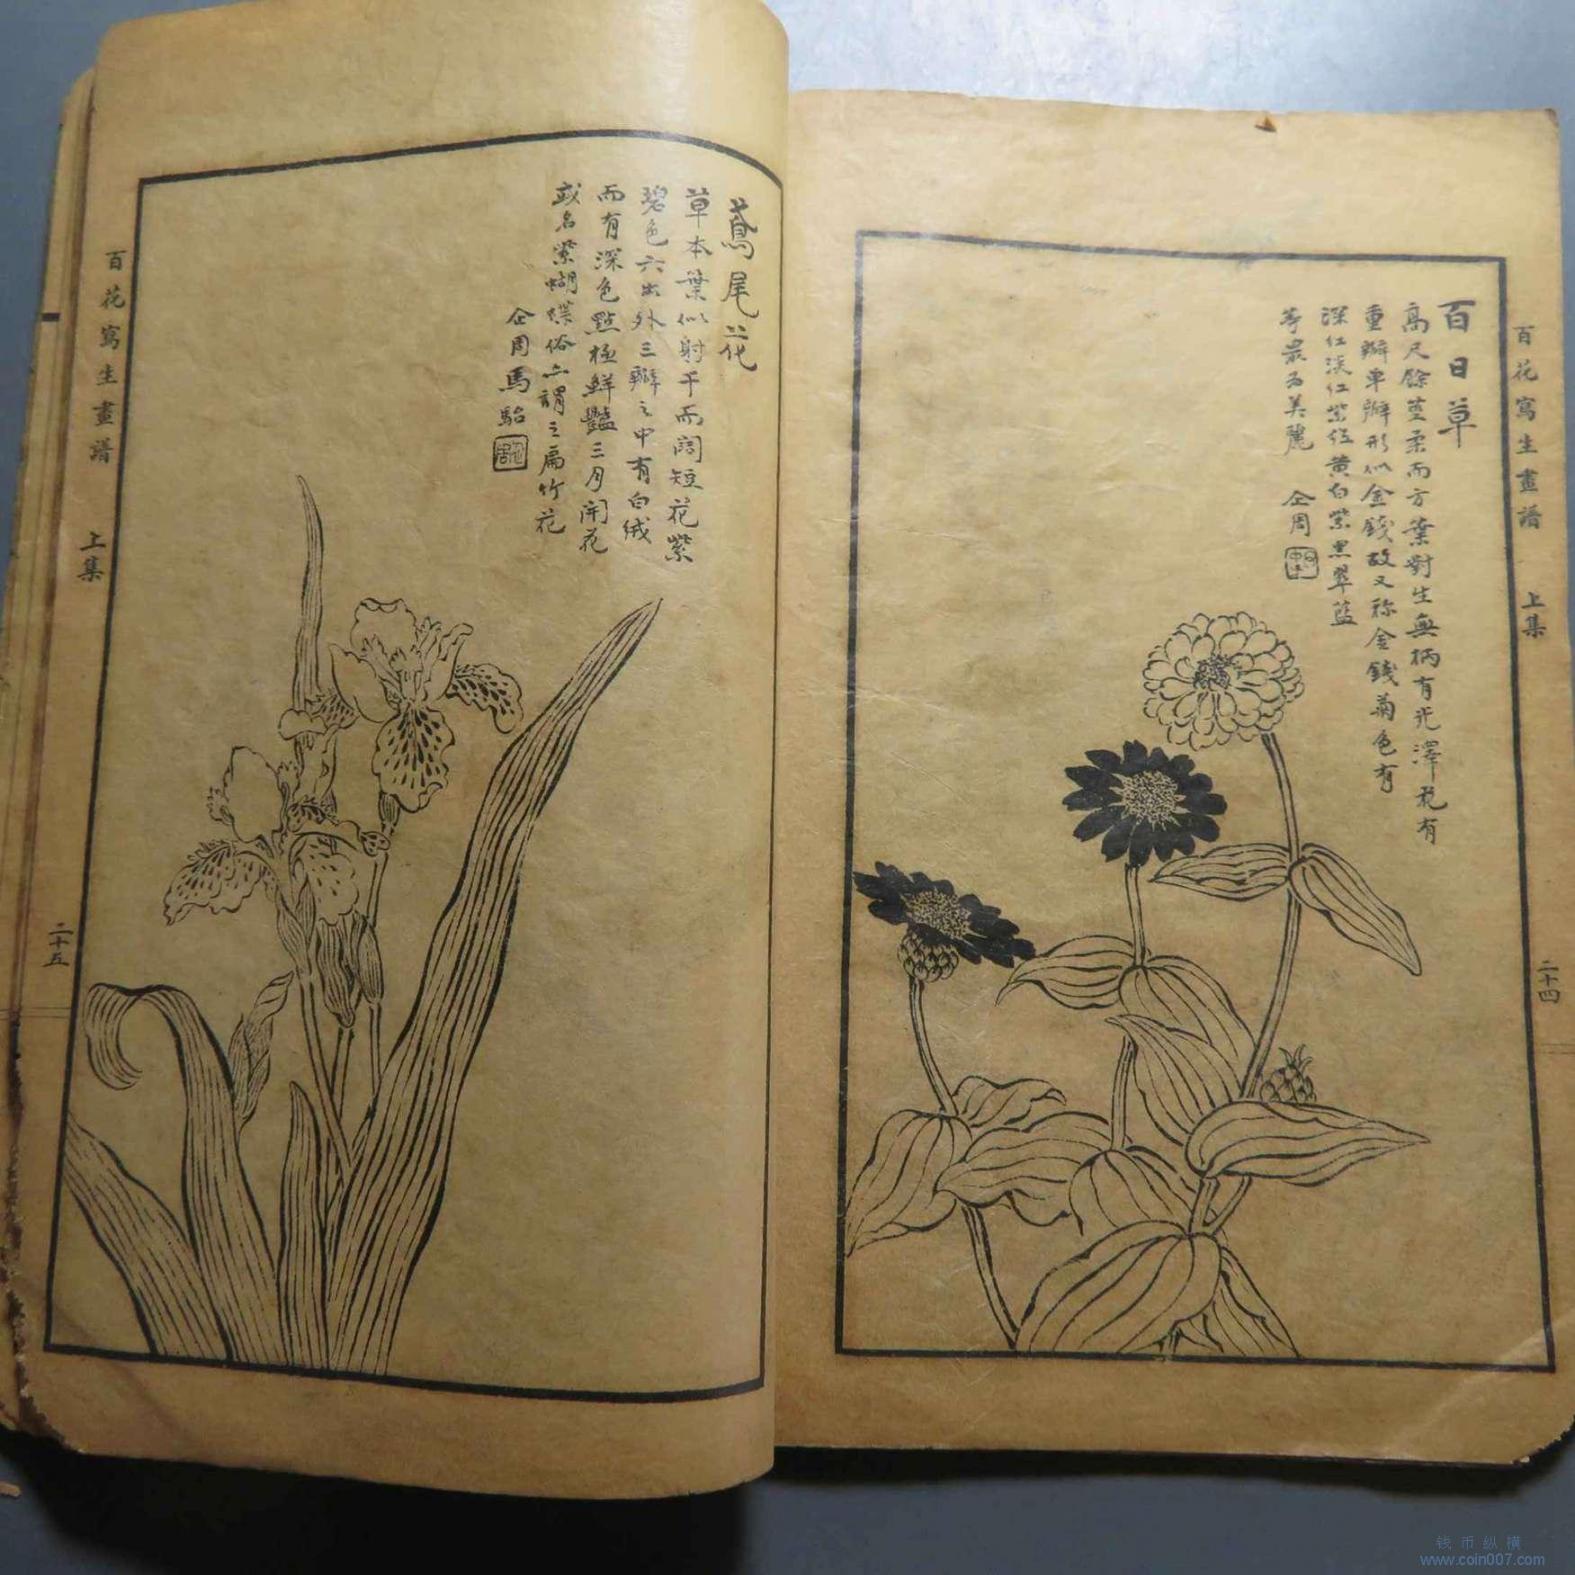 百花寫生畫譜 上集 二十四
百日草
高尺餘莖柔而方葉對生無柄有光澤花有
重瓣單瓣形似金錢故又称金錢菊色有
深红淡红紫红黄白紫黑翠藍
等最為美麗 企周
鳶尾花
草本葉似射干而闊短花紫
碧色六出外三瓣之中有白绒
而有深色點極鮮豔三月開花
或名紫蝴蝶俗亦謂之扁竹花
企周馬駘
百花寫生畫譜 上集 二十五
钱币纵横
www.coin007.com